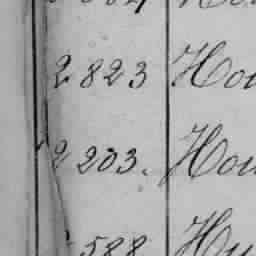 2 823 Hou
2 203. Hou
588 Hu